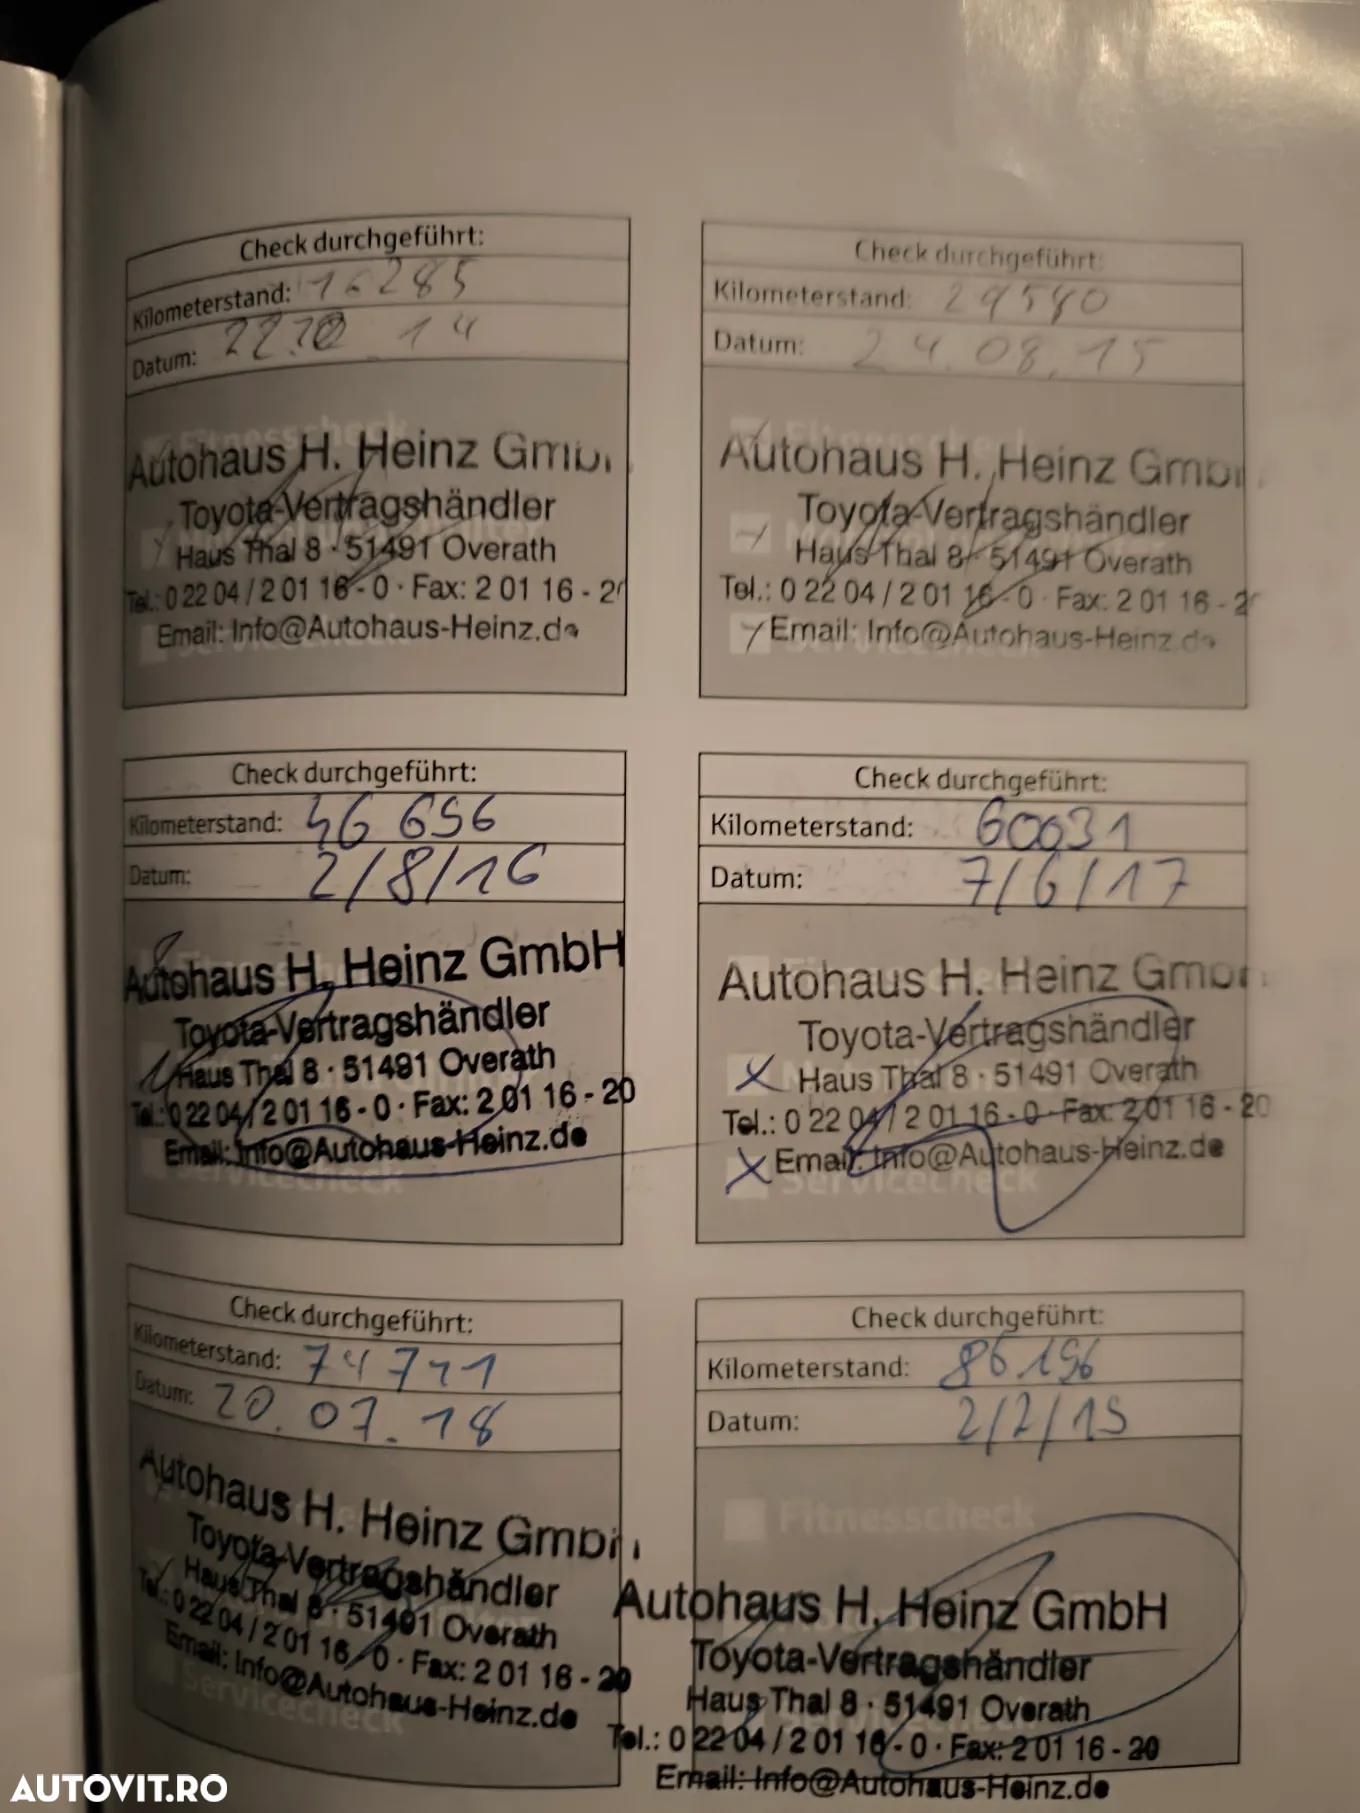 Check durchgeführt:
Kilometerstand: 16285
Datum: 22.10 14
Autohaus H. Heinz Gmb
Toyota-Vertragshändler
Haus Thal 8 · 51491 Overath
Tel.: 0 22 04 / 2 01 16 - 0 · Fax: 2 01 16 - 2
Email: Info@Autohaus-Heinz.de
Check durchgeführt:
Kilometerstand: 29580
Datum: 24.08.15
Fitnesscheck
Autohaus H. Heinz Gmb
Toyota-Vertragshändler
Haus Thal 8 · 51491 Overath
Tel.: 0 22 04 / 2 01 16 - 0 · Fax: 2 01 16 - 2
Email: Info@Autohaus-Heinz.de
Servicecheck
Check durchgeführt:
Kilometerstand: 46 656
Datum: 2/8/16
Autohaus H. Heinz GmbH
Toyota-Vertragshändler
Haus Thal 8 · 51491 Overath
Tel.: 0 22 04 / 2 01 16 - 0 · Fax: 2 01 16 - 20
Email: Info@Autohaus-Heinz.de
Servicecheck
Check durchgeführt:
Kilometerstand: 60031
Datum: 7/6/17
Autohaus H. Heinz Gmb
Toyota-Vertragshändler
Haus Thal 8 · 51491 Overath
Tel.: 0 22 04 / 2 01 16 - 0 · Fax: 2 01 16 - 20
Email: Info@Autohaus-Heinz.de
Servicecheck
Check durchgeführt:
Kilometerstand:
Datum: 20.07.18
Autohaus H. Heinz Gmb
Toyota-Vertragshändler
Haus Thal 8 · 51491 Overath
Tel.: 0 22 04 / 2 01 16 - 0 · Fax: 2 01 16 - 20
Email: Info@Autohaus-Heinz.de
Servicecheck
Check durchgeführt:
Kilometerstand: 86196
Datum: 2/2/19
Fitnesscheck
Autohaus H. Heinz GmbH
Toyota-Vertragshändler
Haus Thal 8 · 51491 Overath
Tel.: 0 22 04 / 2 01 16 - 0 · Fax: 2 01 16 - 20
Email: Info@Autohaus-Heinz.de
AUTOVIT.RO